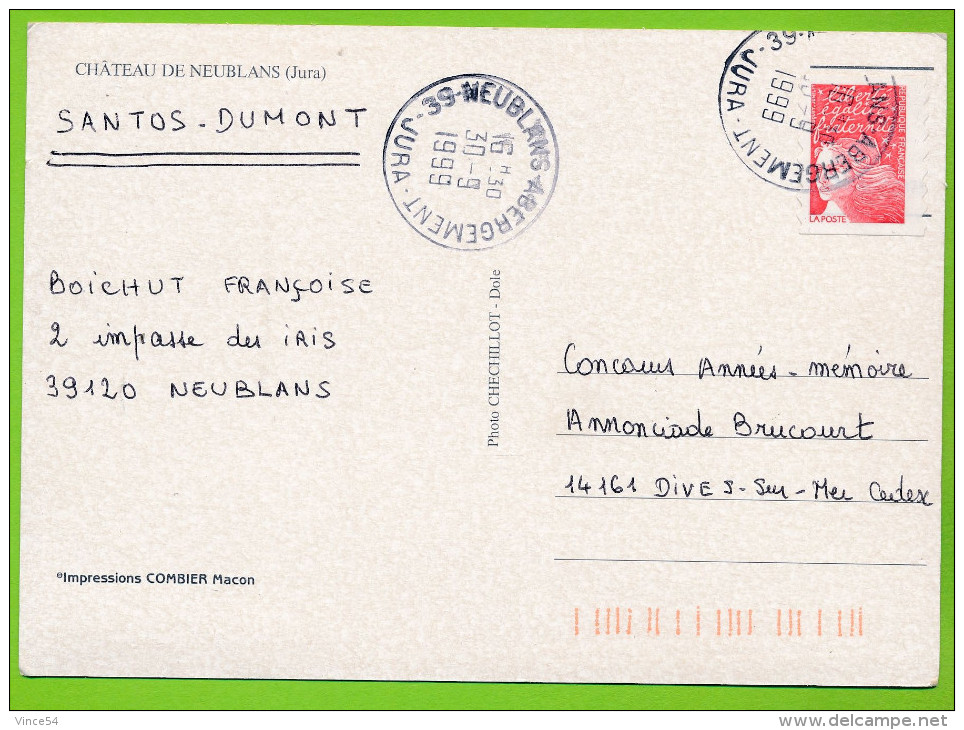 CHÂTEAU DE NEUBLANS (Jura)
SANTOS-DUMONT
39-NEUBLANS-ABERGEMENT - JURA -
16 H 30
30-9
1999
39-
ANS ABERGEMENT - JURA -
1999
liberté
égalité
fraternité
RÉPUBLIQUE FRANÇAISE
LA POSTE
BOICHUT FRANÇOISE
2 impasse des iRis
39120 NEUBLANS
Photo CHECHILLOT - Dole
Concours Années-mémoire
Annonciade Brucourt
14161 DIVES-Sur-Mer Cedex
®Impressions COMBIER Macon
Vince54
www.delcampe.net